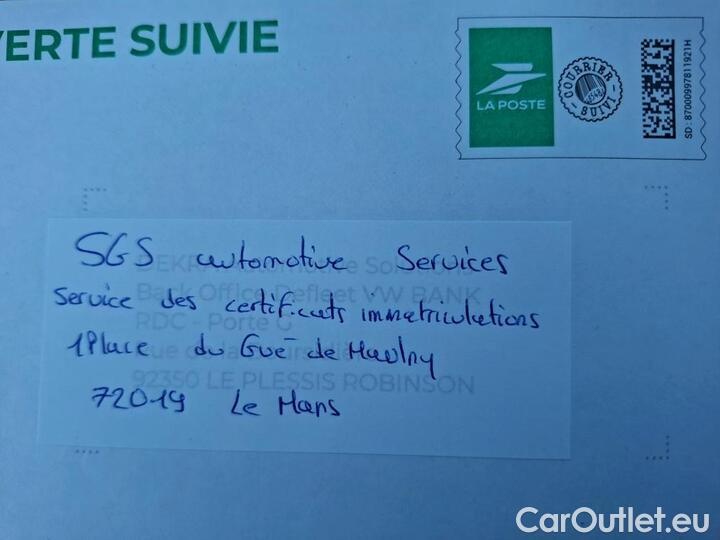 VERTE SUIVIE
LA POSTE
COURRIER SUIVI
SD : 87000997811921H
SGS automotive Services
DEKRA Automotive Sol
service des certificats immatriculations
Back Office Defleet VW BANK
RDC - Porte G
1 Place du Gué de Maulny
92350 LE PLESSIS ROBINSON
72019 Le Mans
CarOutlet.eu